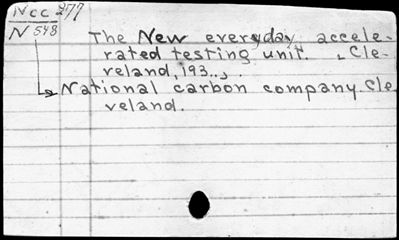 NCC 277
N 548
The New everyday accele-
rated testing unit. Cle-
veland, 193..,
National carbon company. Cle
veland.